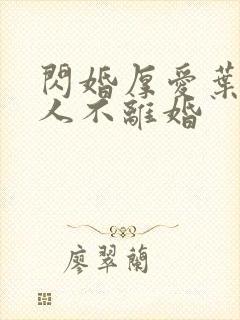 閃婚厚愛葉
人不離婚
廖翠蘭